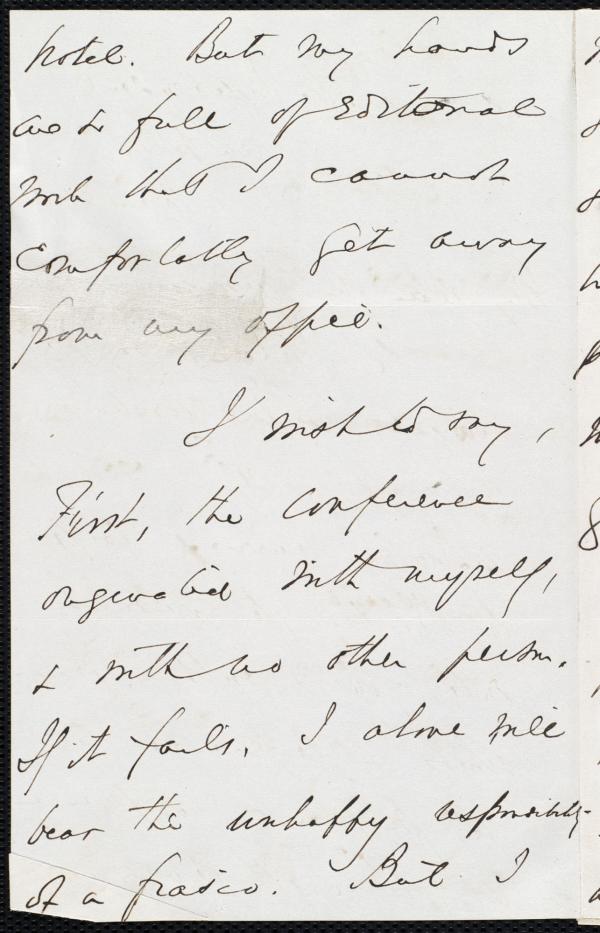 hotel. But my hands
are so full of Editorial
work that I cannot
comfortably get away
from my office.
I wish to say,
First, the conference
originated with myself,
& with no other person.
If it fails, I alone will
bear the unhappy responsibility
of a fiasco. But I